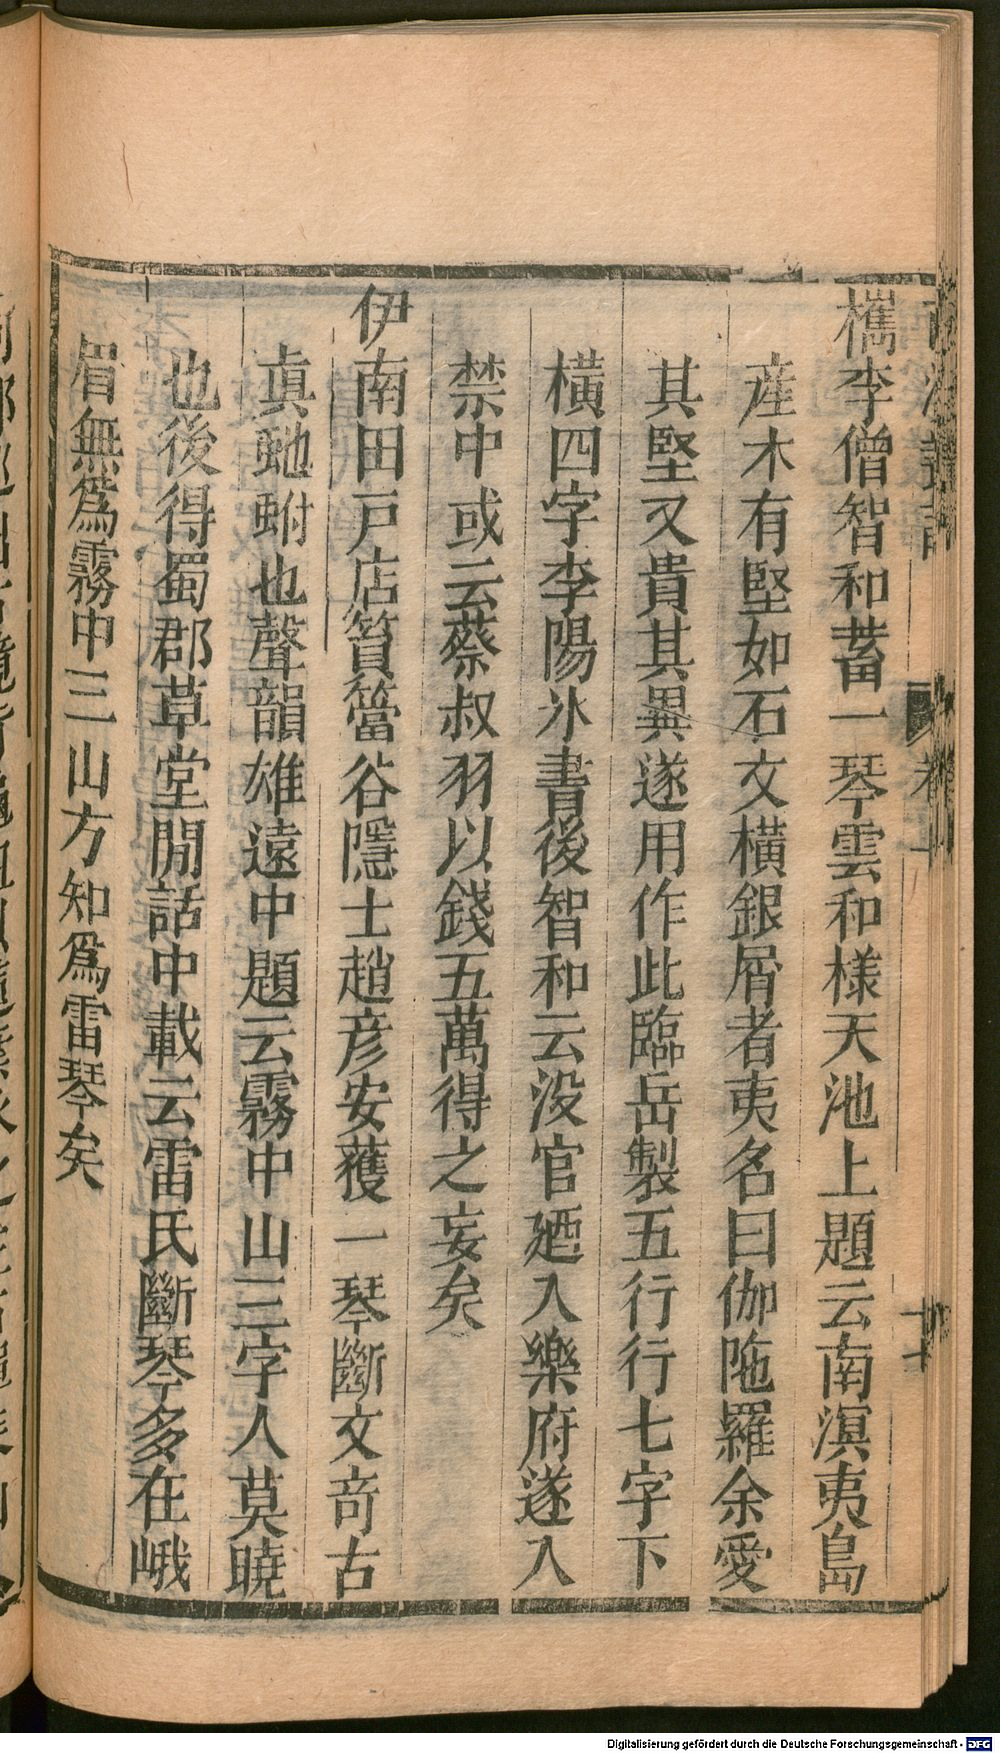 西溪叢語
卷上
十七
檇李僧智和蓄一琴雲和樣天池上題云南溟夷島
產木有堅如石文橫銀屑者夷名曰伽陁羅余愛
其堅又貴其異遂用作此臨岳製五行行七字下
橫四字李陽氷書後智和云没官廼入樂府遂入
禁中或云蔡叔羽以錢五萬得之妄矣
伊南田戸店篔簹谷隱士趙彦安獲一琴斷文竒古
眞虵蚹也聲韻雄遠中題云霧中山三字人莫曉
也後得蜀郡草堂閒話中載云雷氏斷琴多在峨
眉無爲霧中三山方知爲雷琴矣
Digitalisierung gefördert durch die Deutsche Forschungsgemeinschaft - DFG